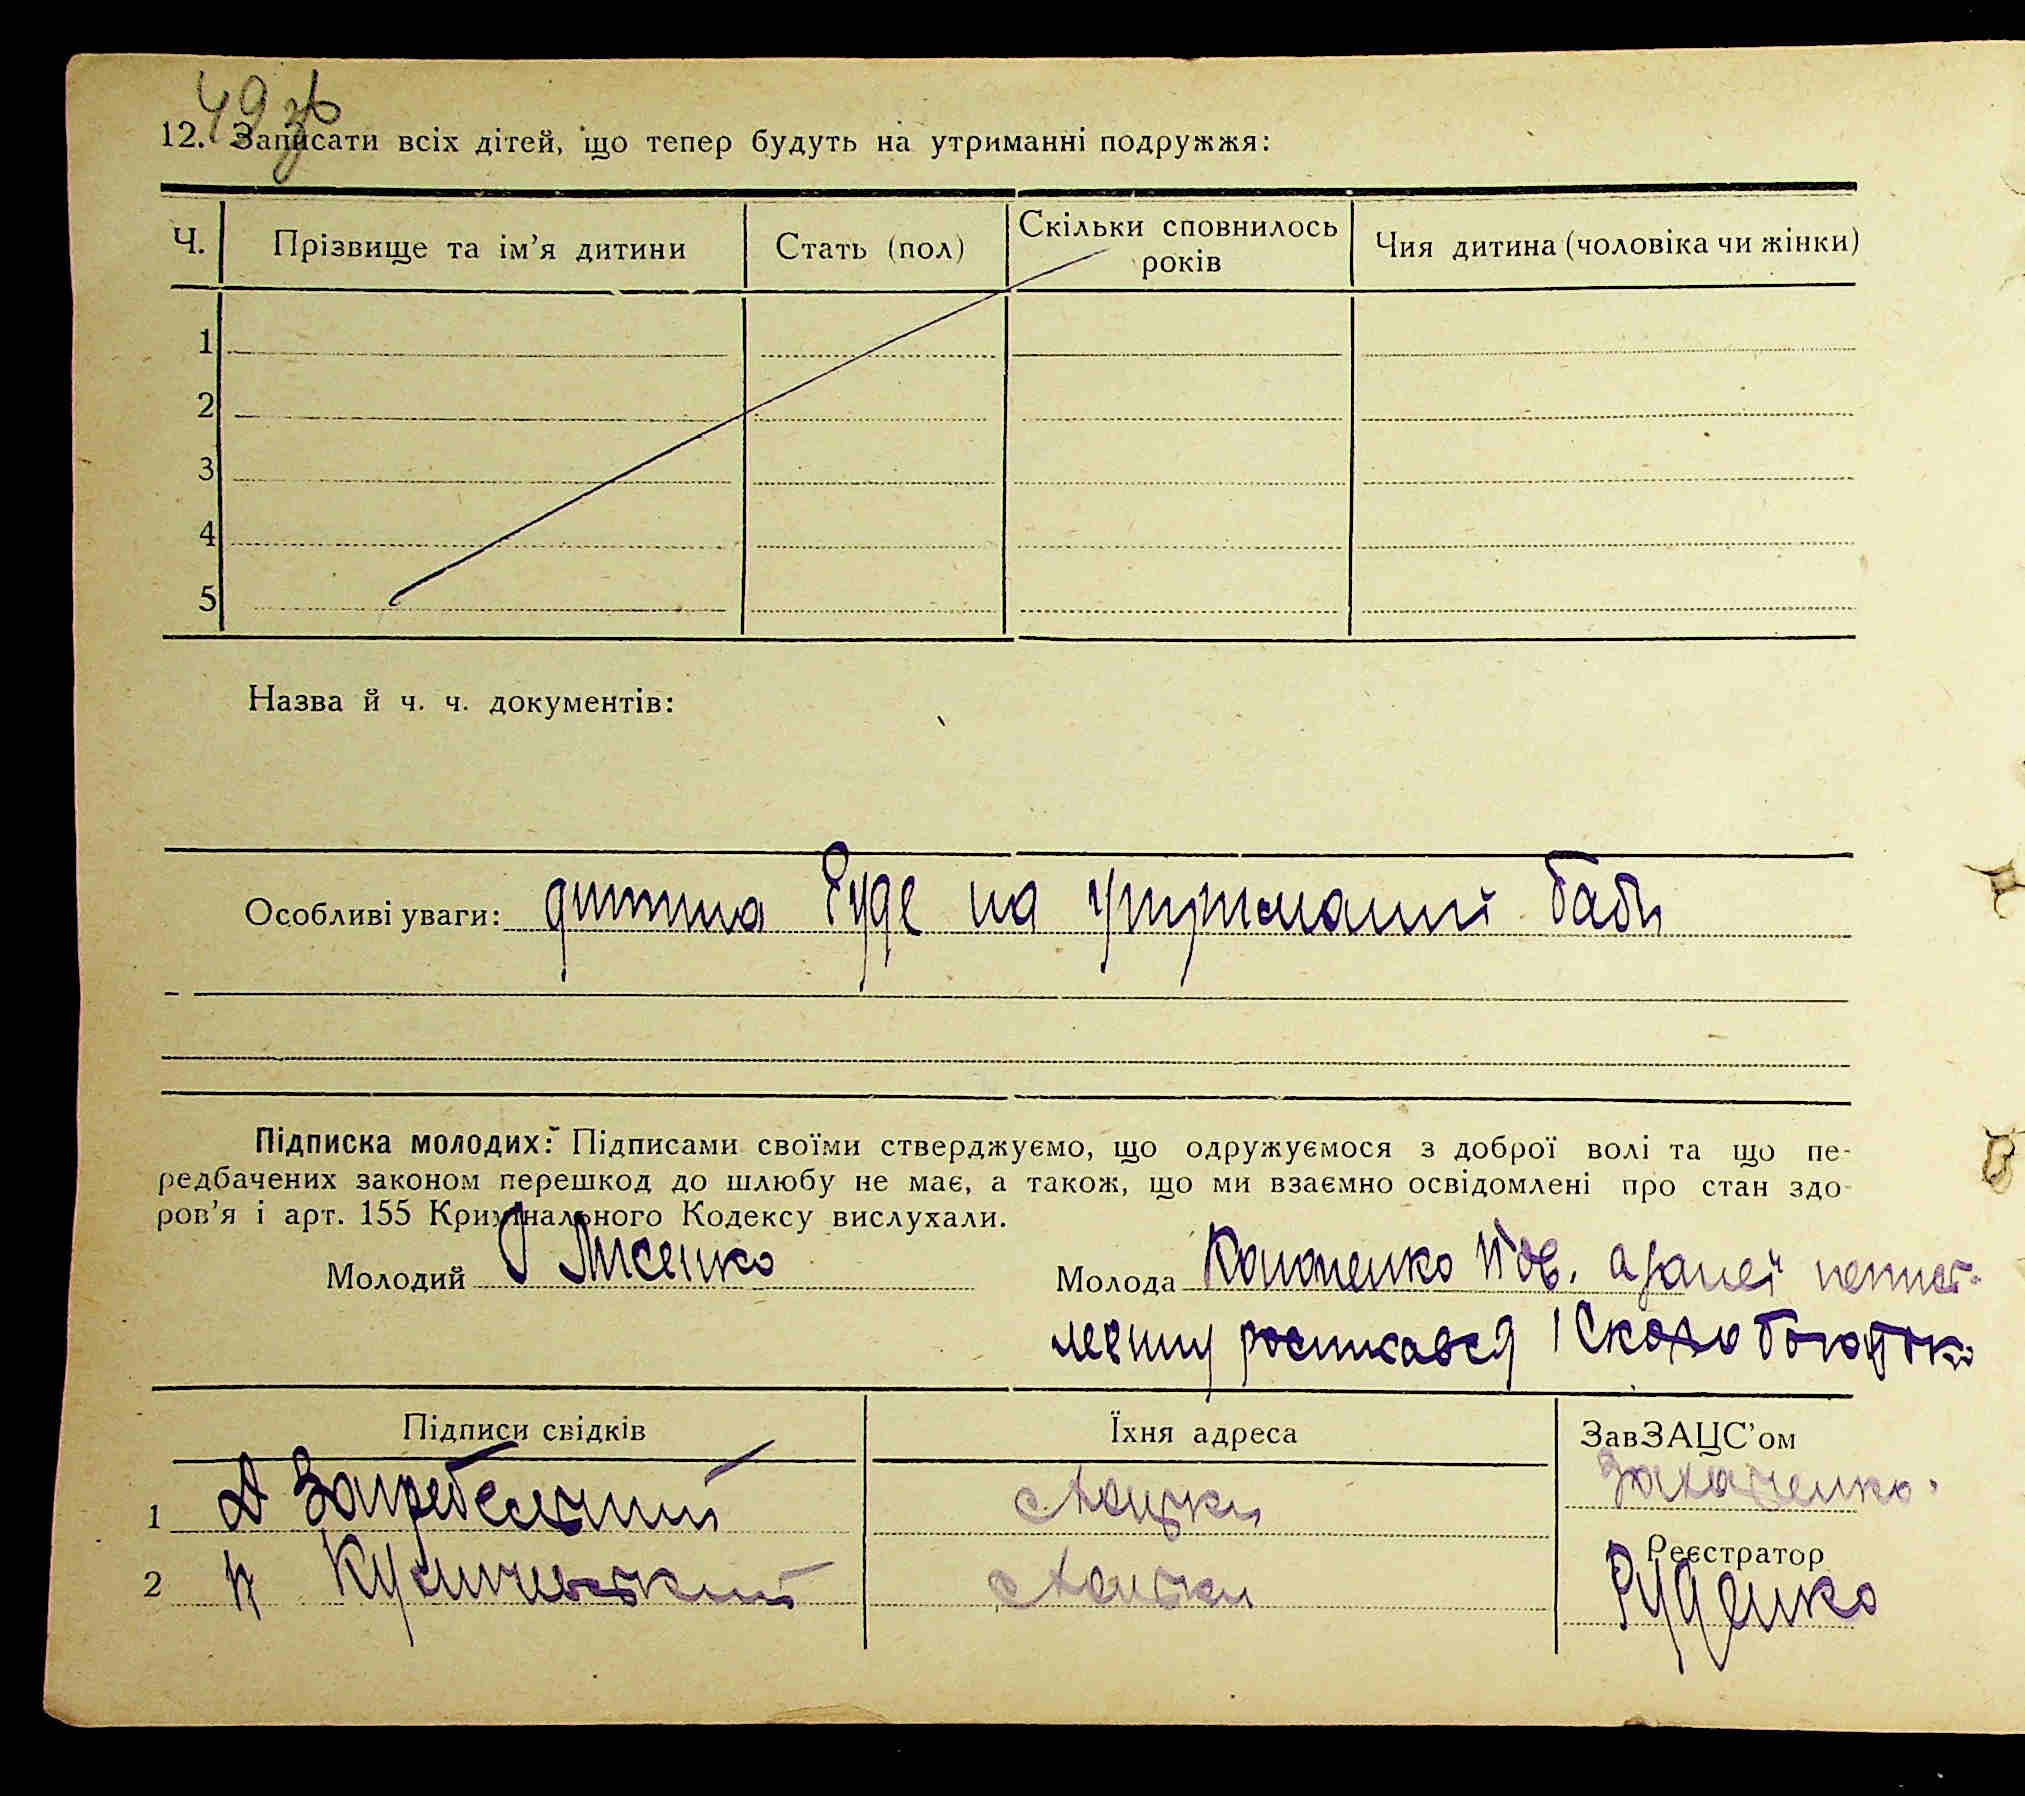 49 зв
12. Записати всіх дітей, що тепер будуть на утриманні подружжя:
Ч. Прізвище та ім'я дитини Стать (пол) Скільки сповнилось років Чия дитина (чоловіка чи жінки)
1
2
3
4
5
Назва й ч. ч. документів:
Особливі уваги: дитина буде на утриманні баби
Підписка молодих: Підписами своїми стверджуємо, що одружуємося з доброї волі та що пе-
редбачених законом перешкод до шлюбу не має, а також, що ми взаємно освідомлені про стан здо-
ров'я і арт. 155 Криминального Кодексу вислухали.
Молодий Лисенко Молода Кононенко а за неї
росписався Скоробогатько
Підписи свідків Їхня адреса ЗавЗАЦС'ом
1 Д Загребельний
Реєстратор
2
Руденко